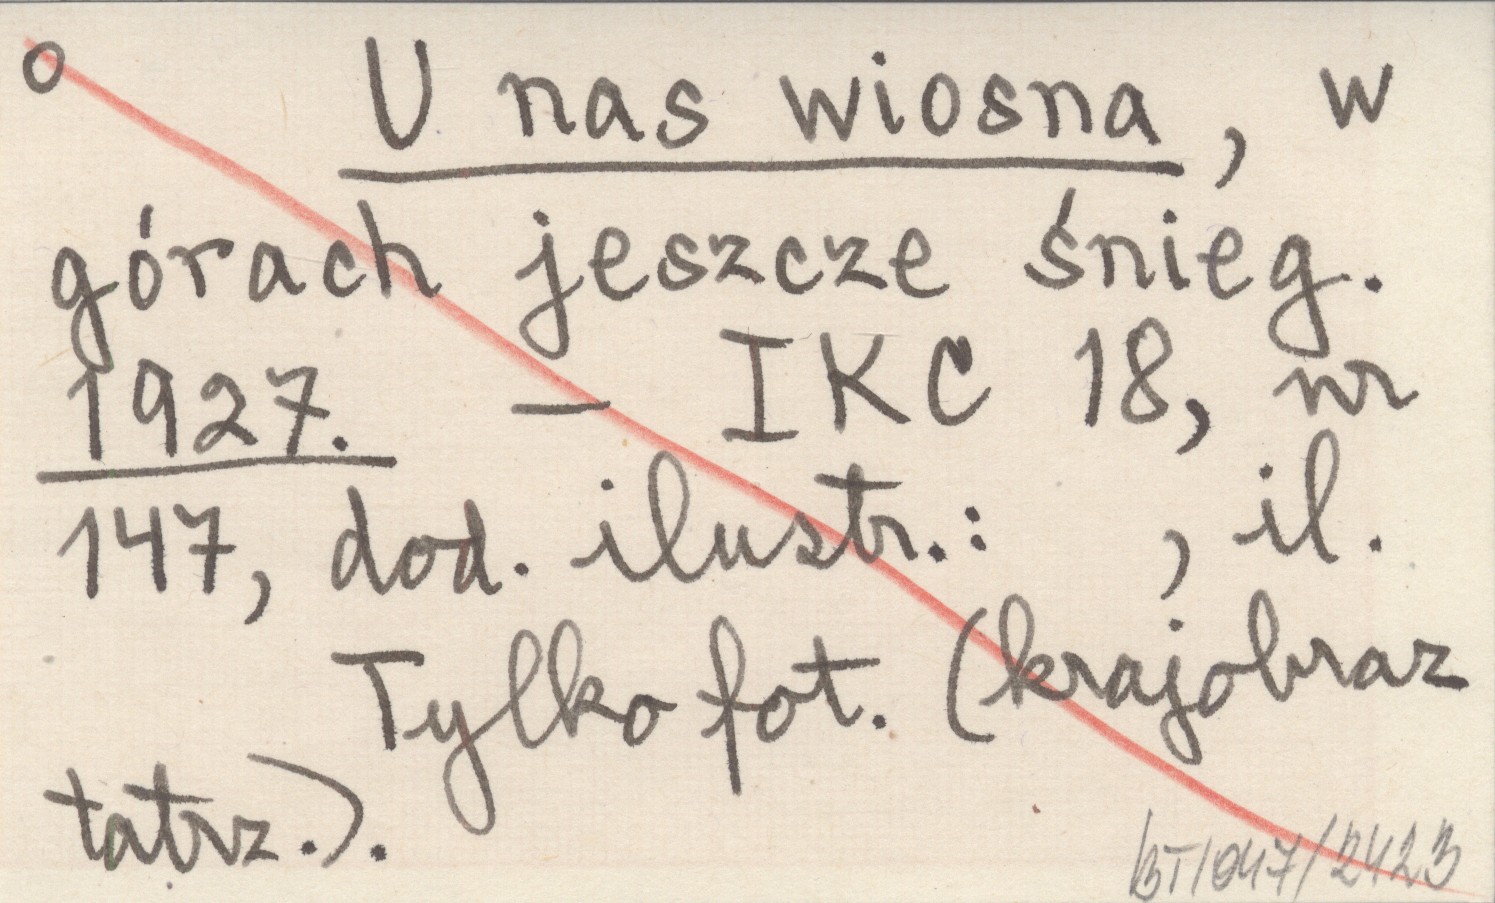 o U nas wiosna, w
górach jeszcze śnieg.
1927. – IKC 18, nr
147, dod. ilustr.: , il.
Tylko fot. (krajobraz
tatrz.).
BT/047/2423